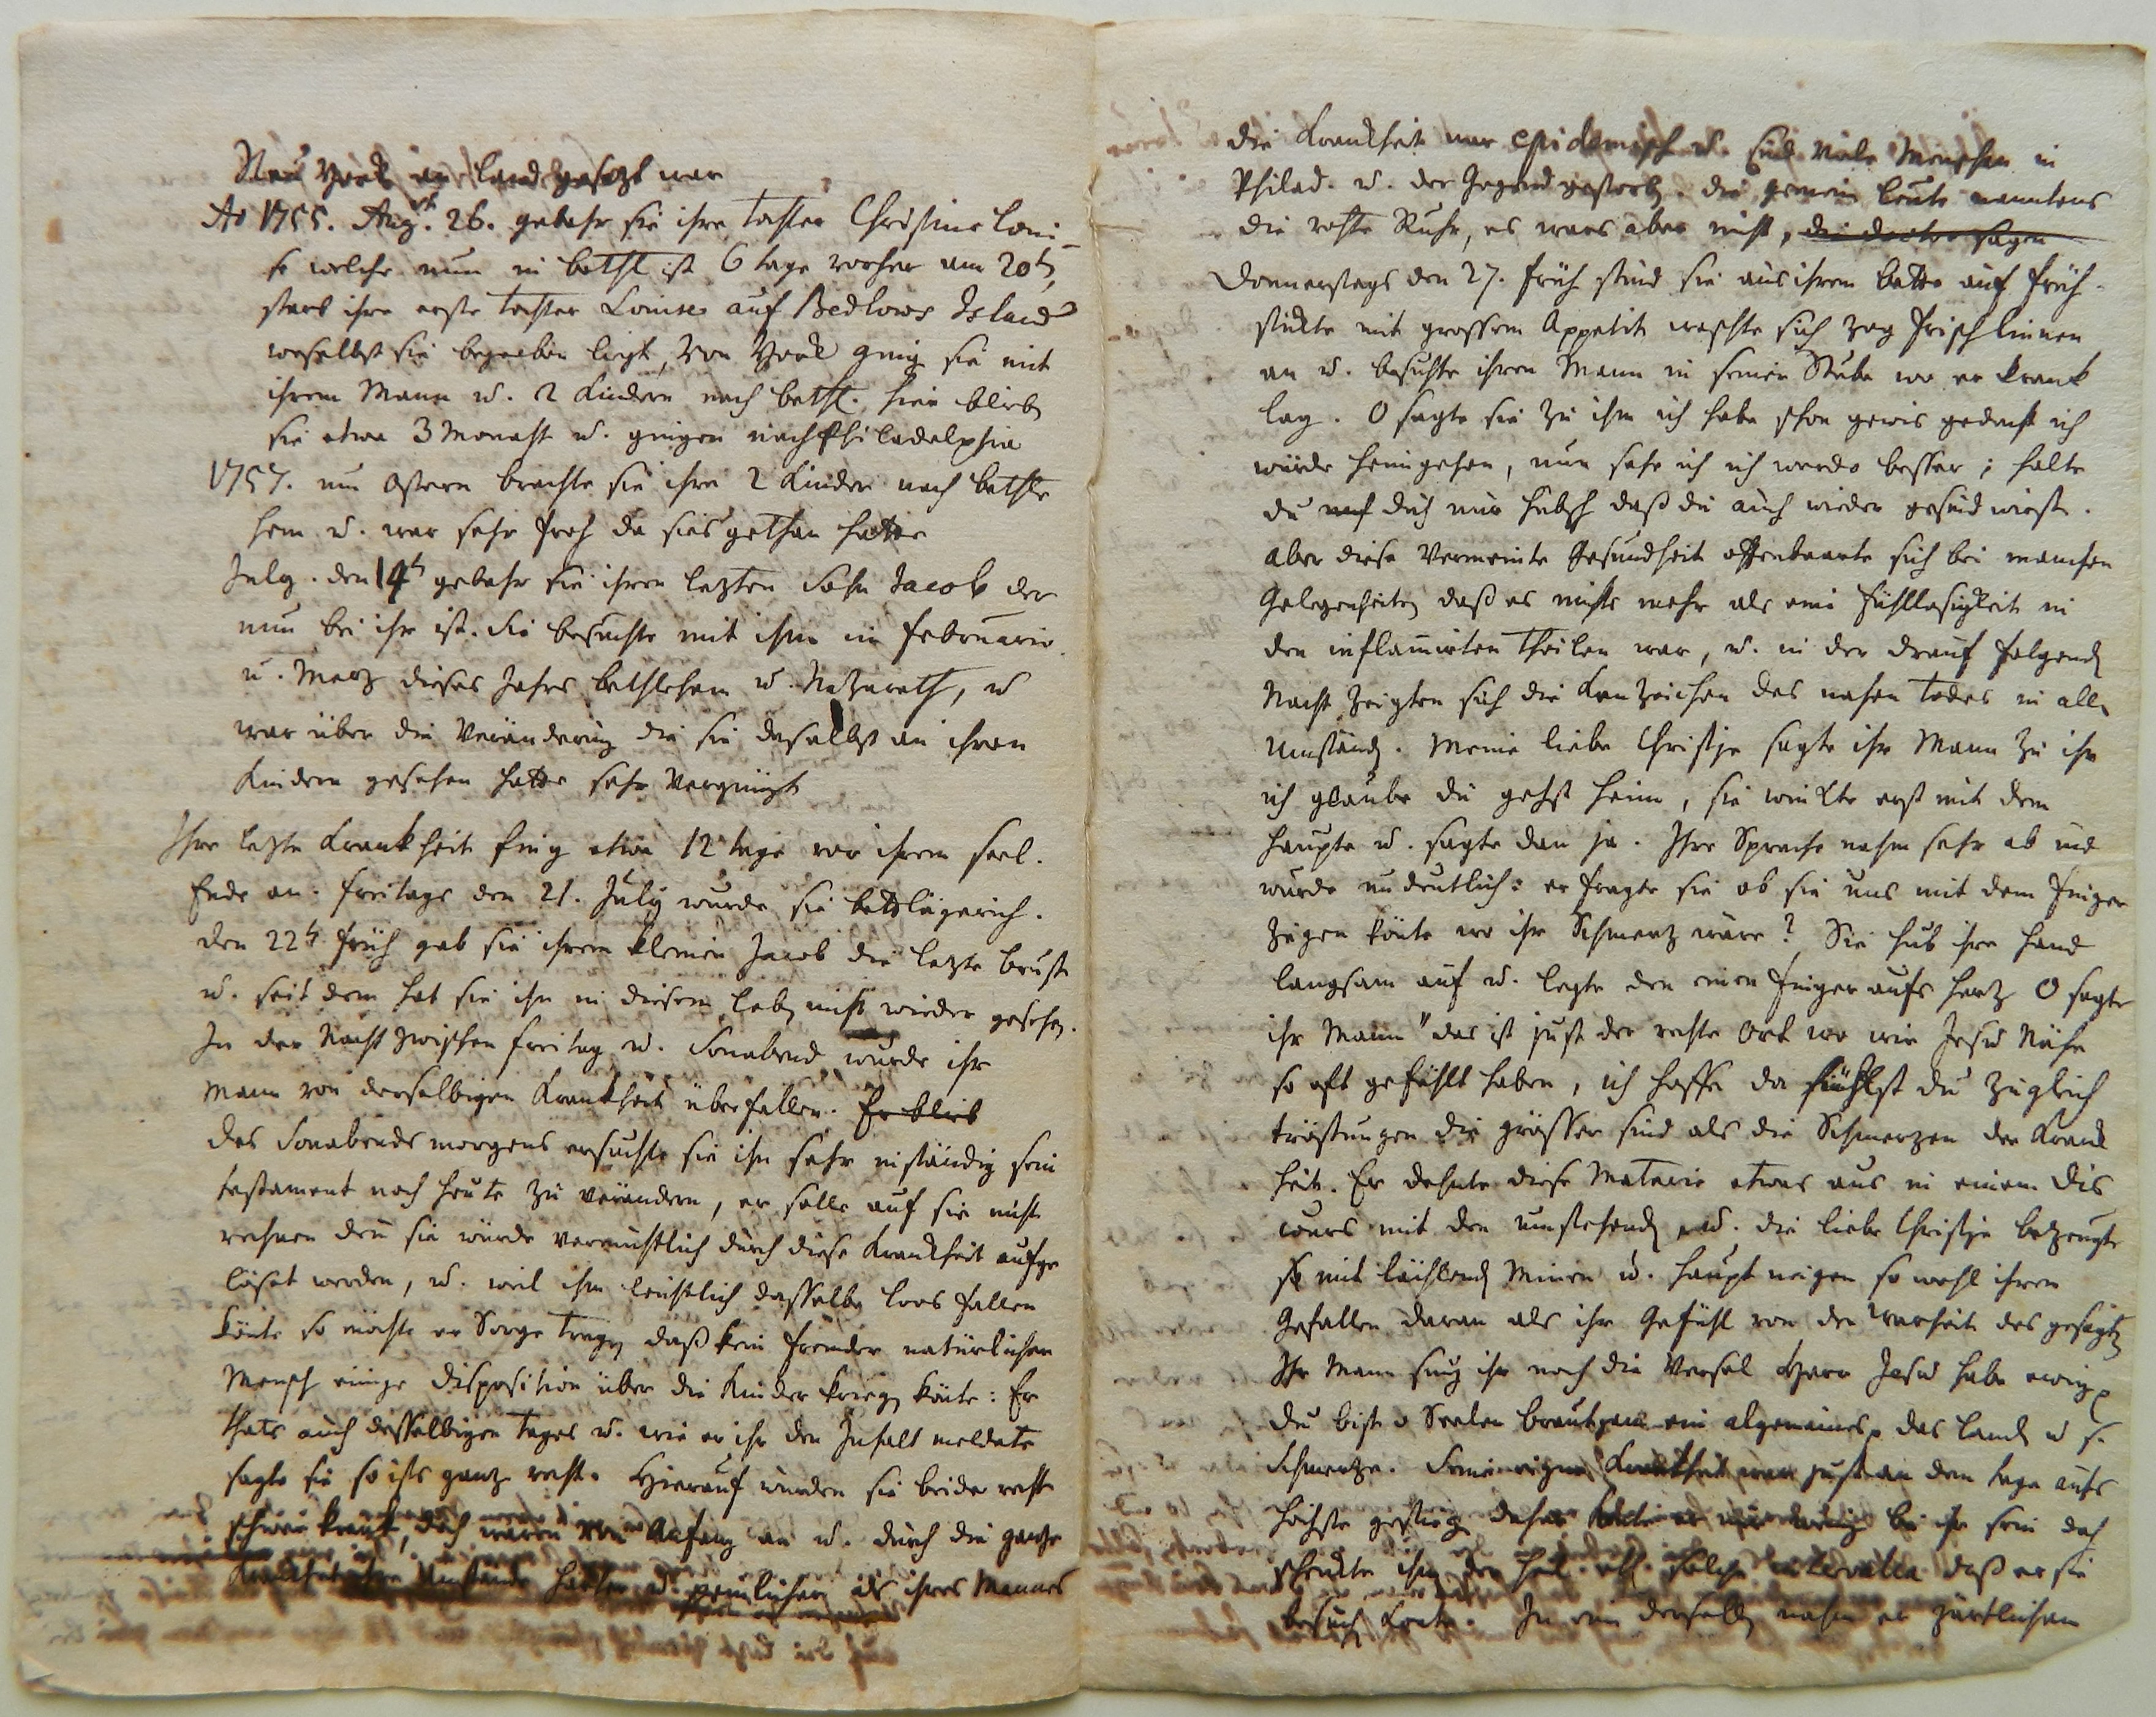 Neu York an land gesezt war
Ao 1755. Aug. 26. gebahr sie ihre tochter Christine Loui-
se welche nun in bethl. ist 6 tage vorher am 20th
starb ihre erste tochter Louise auf Bedlows Island
woselbst sie begraben ligt, von York ging sie mit
ihrem Mann u. 2 Kindern nach bethl. hier blieb
sie etwa 3 Monath u. gingen nach Philadelphia
1757. um Ostern brachte sie ihre 2 Kinder nach bethle
hem u. war sehr froh da sies gethan hatte
July. den 14th gebahr sie ihren letzten Sohn Jacob der
nun bei ihr ist. Sie besuchte mit ihm im februario
u. Merz dieses Jahrs bethlehem u. Nazareth, u
war über die Veränderung die sie daselbst an ihren
Kindern gesehen hatte sehr vergnügt
Ihre letzte Krankheit fing etwa 12 tage vor ihrem seel.
Ende an. freitags den 21. July wurde sie bettlägerich.
den 22th früh gab sie ihrem kleinen Jacob die letzte brust
u. seit dem hat sie ihn in diesem leben nicht wieder gesehen.
In der Nacht zwischen freitag u. Sonabend wurde ihr
Mann von derselbigen Krankheit überfallen. Er blieb
des Sonabends morgens ersuchte sie ihn sehr inständig sein
testament noch heute zu verändern, er solle auf sie nicht
rechnen den sie würde vermuthlich durch diese Krankheit aufge
löset werden, u. weil ihm leichtlich dasselbe loos fallen
könte so möchte er Sorge tragen daß kein fremder natürlicher
Mensch einige disposition über die Kinder kriegen könte: Er
thats auch desselbigen tages u. wie er ihr den Inhalt meldete
sagte sie so ists ganz recht. Hierauf wurden sie beide recht
schwer krank, doch waren von Anfang an u. durch die ganze
Krankheit ihre Umstände härter u. peinlicher als ihres Mannes
die Krankheit war epidemisch u. sind viele Menschen in
Philad. u. der Gegend gestorben. die gemeine leute nanntens
die rothe Ruhr, es wars aber nicht, die doctor sagen
Donnerstags den 27. früh stund sie aus ihrem bette auf früh-
stükte mit grossem Appetit waschte sich zog frisch linnen
an u. besuchte ihren Mann in seiner Stube wo er krank
lag. O sagte sie zu ihm ich habe schon gewis gedacht ich
würde heimgehen, nun sehe ich ich werde besser; halte
du auf dich nur hübsch daß du auch wieder gesund wirst.
aber diese vermeinte Gesundheit offenbaarte sich bei manchen
Gelegenheiten daß es nichts mehr als eine fühllosigkeit in
den inflamirten theilen war, u. in der drauf folgenden
Nacht zeigten sich die Kenzeichen des nahen todes in allen
Umständen. Meine liebe Christje sagte ihr Mann zu ihr
ich glaube du gehst heim, sie winkte erst mit dem
haupte u. sagte dan ja. Ihre Sprache nahm sehr ab und
wurde undeutlich: er fragte sie ob sie uns mit dem finger
zeigen könte wo ihr Schmerz wäre? Sie hub ihre hand
langsam auf u. legte den einen finger aufs herz O sagte
ihr Mann "das ist just der rechte Ort wo wir Jesu Nähe
so oft gefühlt haben, ich hoffe da fühlst du zugleich
tröstungen die grösser sind als die Schmerzen der Krank
heit. Er dehnte diese Materie etwas aus in einem dis
cours mit den umstehenden, u. die liebe Christje bezeugte
mit lächlenden Minen u. haupt neigen so wohl ihren
Gefallen daran als ihr Gefühl von der Warheit des gesagten
Ihr Mann sung ihr noch die Versel Herr Jesu habe ewig
du bist o Seelen bräutgam ein algemeines das land u s.
Schmerze. Seine eigne Krankheit war just an dem tage aufs
höchste gestiegen daher konte er nur wenig bei ihr sein doch
schenkte ihm der heil. etl. solche intervalla daß er sie
besuchen konte. In einem derselben nahm er zärtlichen